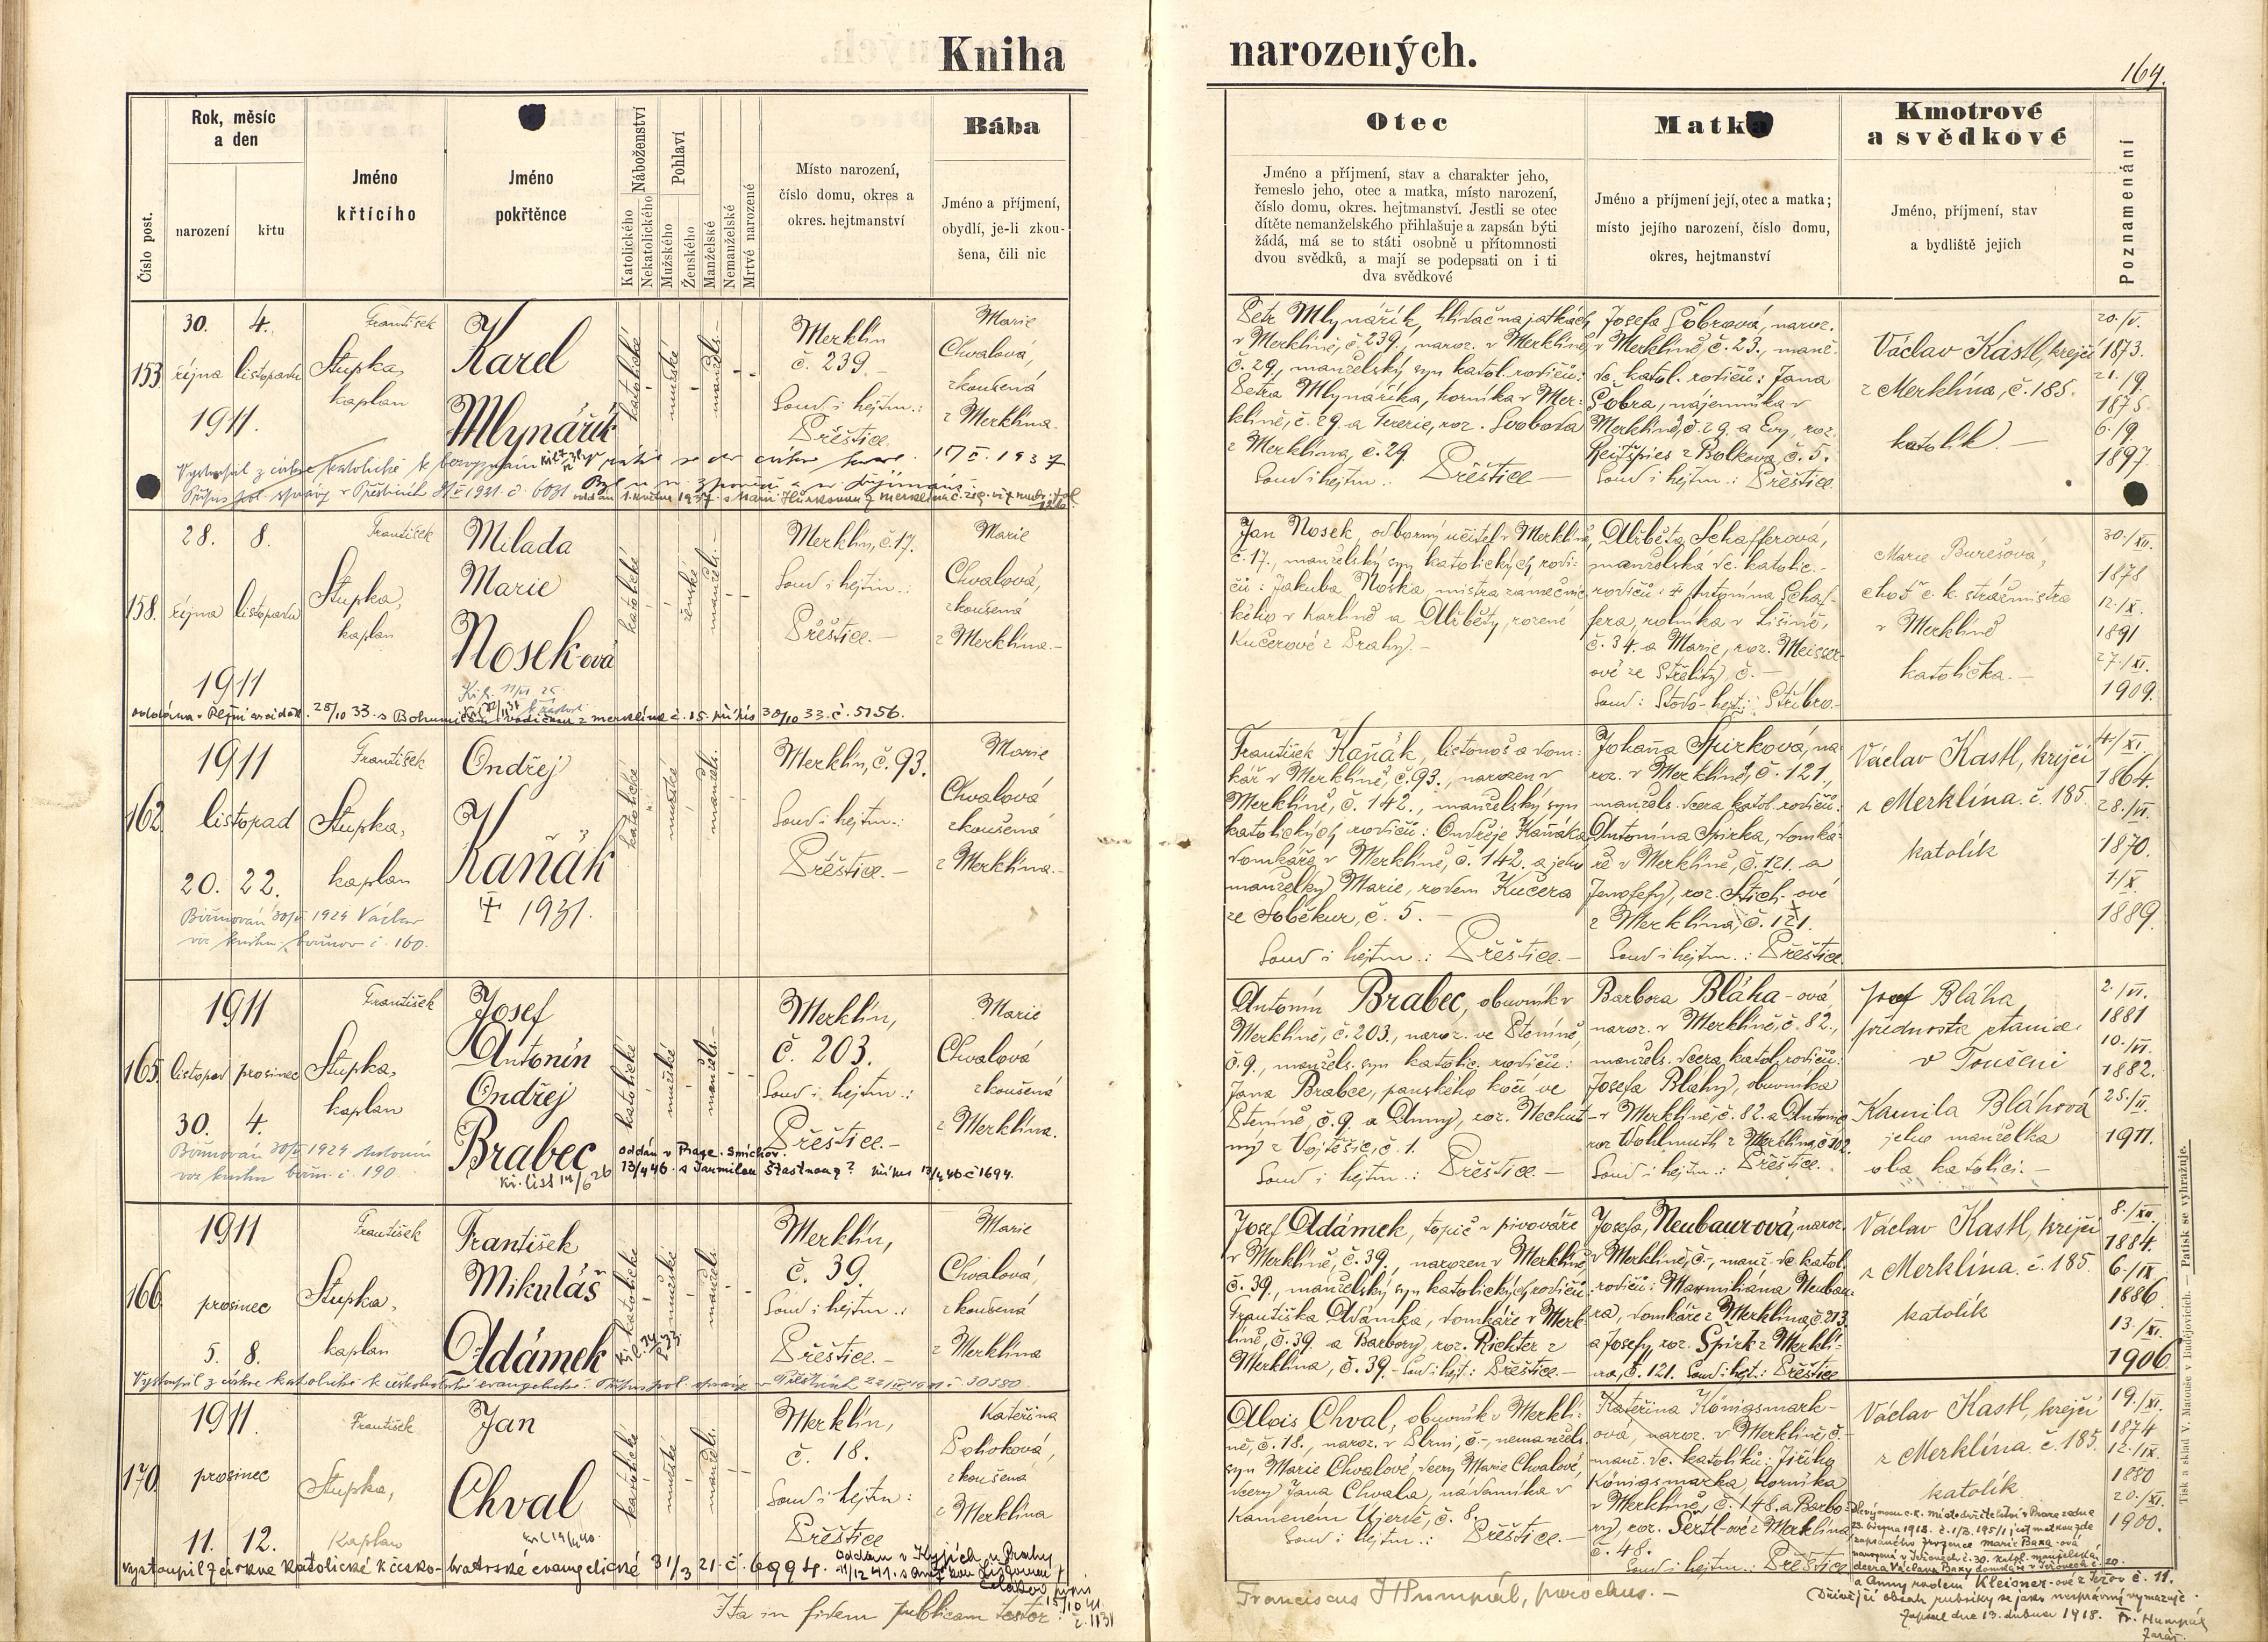 Kniha
narozených.
164.
Číslo post.
Rok, měsíc
a den
narození
křtu
Jméno
křtícího
Jméno
pokřtěnce
Náboženství
Katolického
Nekatolického
Pohlaví
Mužského
Ženského
Manželské
Nemanželské
Mrtvé narozené
Místo narození,
číslo domu, okres a
okres. hejtmanství
Bába
Jméno a příjmení,
obydlí, je-li zkou-
šena, čili nic
Otec
Jméno a příjmení, stav a charakter jeho,
řemeslo jeho, otec a matka, místo narození,
číslo domu, okres. hejtmanství. Jestli se otec
dítěte nemanželského přihlašuje a zapsán býti
žádá, má se to státi osobně u přítomnosti
dvou svědků, a mají se podepsati on i ti
dva svědkové
Matka
Jméno a příjmení její, otec a matka;
místo jejího narození, číslo domu,
okres, hejtmanství
Kmotrové
a svědkové
Jméno, příjmení, stav
a bydliště jejich
Poznamenání
153
30. 4.
října listopadu
1911.
František
Stupka,
kaplan
Karel
Mlynařík
katolické
mužské
manžels.
Merklín
č. 239.
Soud i hejtm.:
Přeštice.
Marie
Chvalová,
zkoušená
z Merklína.
Petr Mlynářík, hlídač na jatkách
v Merklíně, č. 239., naroz. v Merklíně,
č. 29., manželský syn katol. rodičů:
Petra Mlynáříka, horníka v Mer-
klíně, č. 29 a Terezie, roz. Svoboda
z Merklína, č. 29.
Soud i hejtm.: Přeštice
Josefa Šobrová, naroz.
v Merklíně, č. 23., manž.
dc. katol. rodičů: Jana
Šobra, nájemníka v
Merklíně, č. 29. a Evy, roz.
Reitšpies z Bolkova, č. 5.
Soud i hejtm.: Přeštice.
Václav Kastl, krejčí
z Merklína, č. 185.
katolík.
20./V.
1873.
21./9
1875
6./9
1897.
Vystoupil z církve katolické k bezvyznání
17 II. 1937
158.
28. 8.
října listopadu
1911
František
Stupka,
kaplan
Milada
Marie
Nosek-ová
katolické
ženské
manžels.
Merklín, č. 17.
Soud i hejtm.:
Přeštice.
Marie
Chvalová,
zkoušená
z Merklína.
Jan Nosek, odborný učitel v Merklíně,
č. 17., manželský syn katolických rodi-
čů: Jakuba Noska, mistra zámečnic-
kého v Karlíně a Alžběty, rozené
Kučerové z Prahy.
Alžběta Schafferová,
manželská dc. katolic.
rodičů: Antonína Schaf-
fera, rolníka v Lišině,
č. 34. a Marie, roz. Meisser-
ové ze Střelitz, č.
Soud: Stodo- hejt.: Stříbro.
Marie Burešová,
choť c. k. strážmistra
v Merklíně
katolička.
30./XII.
1878
12./X.
1891
27./XI.
1909.
28/10 33. s Bohumilem Vodičkou z merklína č. 15. přípis 30/10 33. č. 5156.
162.
1911
listopad
20. 22.
František
Stupka,
kaplan
Ondřej
Kaňák
† 1931.
katolické
mužské
manžels.
Merklín, č. 93.
Soud i hejtm.:
Přeštice.
Marie
Chvalová
zkoušená
z Merklína.
František Kaňák, listonoš a dom-
kář v Merklíně, č. 93., narozen v
Merklíně, č. 142., manželský syn
katolických rodičů: Ondřeje Kaňáka,
domkáře v Merklíně, č. 142. a jeho
manželky Marie, rodem Kučera
ze Soběkur, č. 5.
Soud i hejtm.: Přeštice.
Johaňa Spirková, na-
roz. v Merklíně, č. 121.,
manžels. dcera katol. rodičů:
Antonína Spirka, domká-
ře v Merklíně, č. 121. a
Josefy, roz. Stich-ové
z Merklína, č. 121.
Soud i hejtm.: Přeštice.
Václav Kastl, krejčí
z Merklína. č. 185
katolík
4./XI.
1864.
28./VI.
1870.
7/X.
1889.
Biřmován 30/V 1924 Václav
viz knihu biřmov. č. 160.
165.
1911
listopad prosinec
30. 4.
František
Stupka,
kaplan
Josef
Antonín
Ondřej
Brabec
katolické
mužské
manžels.
Merklín,
č. 203.
Soud i hejtm.:
Přeštice.
Marie
Chvalová
zkoušená
z Merklína.
Antonín Brabec, obuvník v
Merklíně, č. 203., naroz. ve Pteníně,
č. 9., manžels. syn katolic. rodičů:
Jana Brabce, panského kočí ve
Pteníně, č. 9. a Anny, roz. Nechut-
ný z Vojtěšic, č. 1.
Soud i hejtm.: Přeštice.
Barbora Bláha-ová
naroz. v Merklíně, č. 82.,
manžels. dcera katol. rodičů:
Josefa Bláhy, obuvníka
v Merklíně, č. 82. a Antonie
roz Wohlmuth z Merklína, č. 102.
Soud i hejtm.: Přeštice.
Josef Bláha
přednosta stanice
v Toušeni
Kamila Bláhová
jeho manželka
oba katolíci.
2./VI.
1881
10./VI.
1882.
25./II.
1911.
Biřmován 30/V 1924 Antonín
viz knihu biřm. č. 190.
kř. list 14/6 26
oddán v Praze. Smíchov.
13/4 46. s Jarmilou Šťastnou? přípis 13/4 46 č 1694.
166.
1911
prosinec
5. 8.
František
Stupka,
kaplan
František
Mikuláš
Adámek
katolické
mužské
manžels.
Merklín,
č. 39.
Soud i hejtm.:
Přeštice.
Marie
Chvalová,
zkoušená
z Merklína
Josef Adámek, topič v pivováře
v Merklíně, č. 39., narozen v Merklíně,
č. 39., manželský syn katolických rodičů:
Františka Adámka, domkáře v Merk-
líně, č. 39 a Barbory, roz. Richter z
Merklína, č. 39. Soud i hejt.: Přeštice.
Josefa, Neubaur-ová, naroz.
v Merklíně, č-, manž. dc. katol.
rodičů: Maxmiliána Neubau-
ra, domkáře z Merklína, č. 213.
a Josefy, roz. Spirk z Merklí-
na, č. 121. Soud i hejt.: Přeštice
Václav Kastl, krejčí
z Merklína. č. 185.
katolík
8./XII.
1884.
6./IX
1886
13./XI.
1906
Vystoupil z církve katolické k českobratrské evangelické.
170.
1911.
prosinec
11. 12.
František
Stupka,
Kaplan
Jan
Chval
katolické
mužské
manžels.
Merklín,
č. 18.
Soud i hejtm:
Přeštice
Kateřina
Pohoková,
zkoušená
z Merklína
Alois Chval, obuvník v Merklí-
ně, č. 18., naroz. v Plzni, č-, nemanžels.
syn Marie Chvalové, dcery Marie Chvalové,
dcery Jana Chvala, nádeníka v
Kamenném Újezdě, č. 8.
Soud i hejtm.: Přeštice.
Kateřina Königsmark-
ová, naroz. v Merklíně, č.
manž. dc. katolíků: Jiřího
Königsmarka, horníka
v Merklíně, č. 148. a Barbo-
ry, roz. Šertl-ové z Merklína
č. 48.
Soud i hejtm.: Přeštice
Václav Kastl, krejčí
z Merklína. č. 185.
katolík
19./XI.
1874
12./IX.
1880
20./XI.
1900.
vystoupil z církve katolické k česko-bratrské evangelické 31/3 21. č. 6994.
Ita in fidem publicam testor:
Franciscus Humpál, parochus.
a Anny rodem Kleisner-ové z Ježov č. 11.
(Dřívější obsah rubriky se jako nesprávný vymazuje.
Zapsal dne 13. dubna 1918. Fr. Humpál
farář.
Tisk a sklad V. Matouše v Budějovicích. — Patisk se vyhražuje.